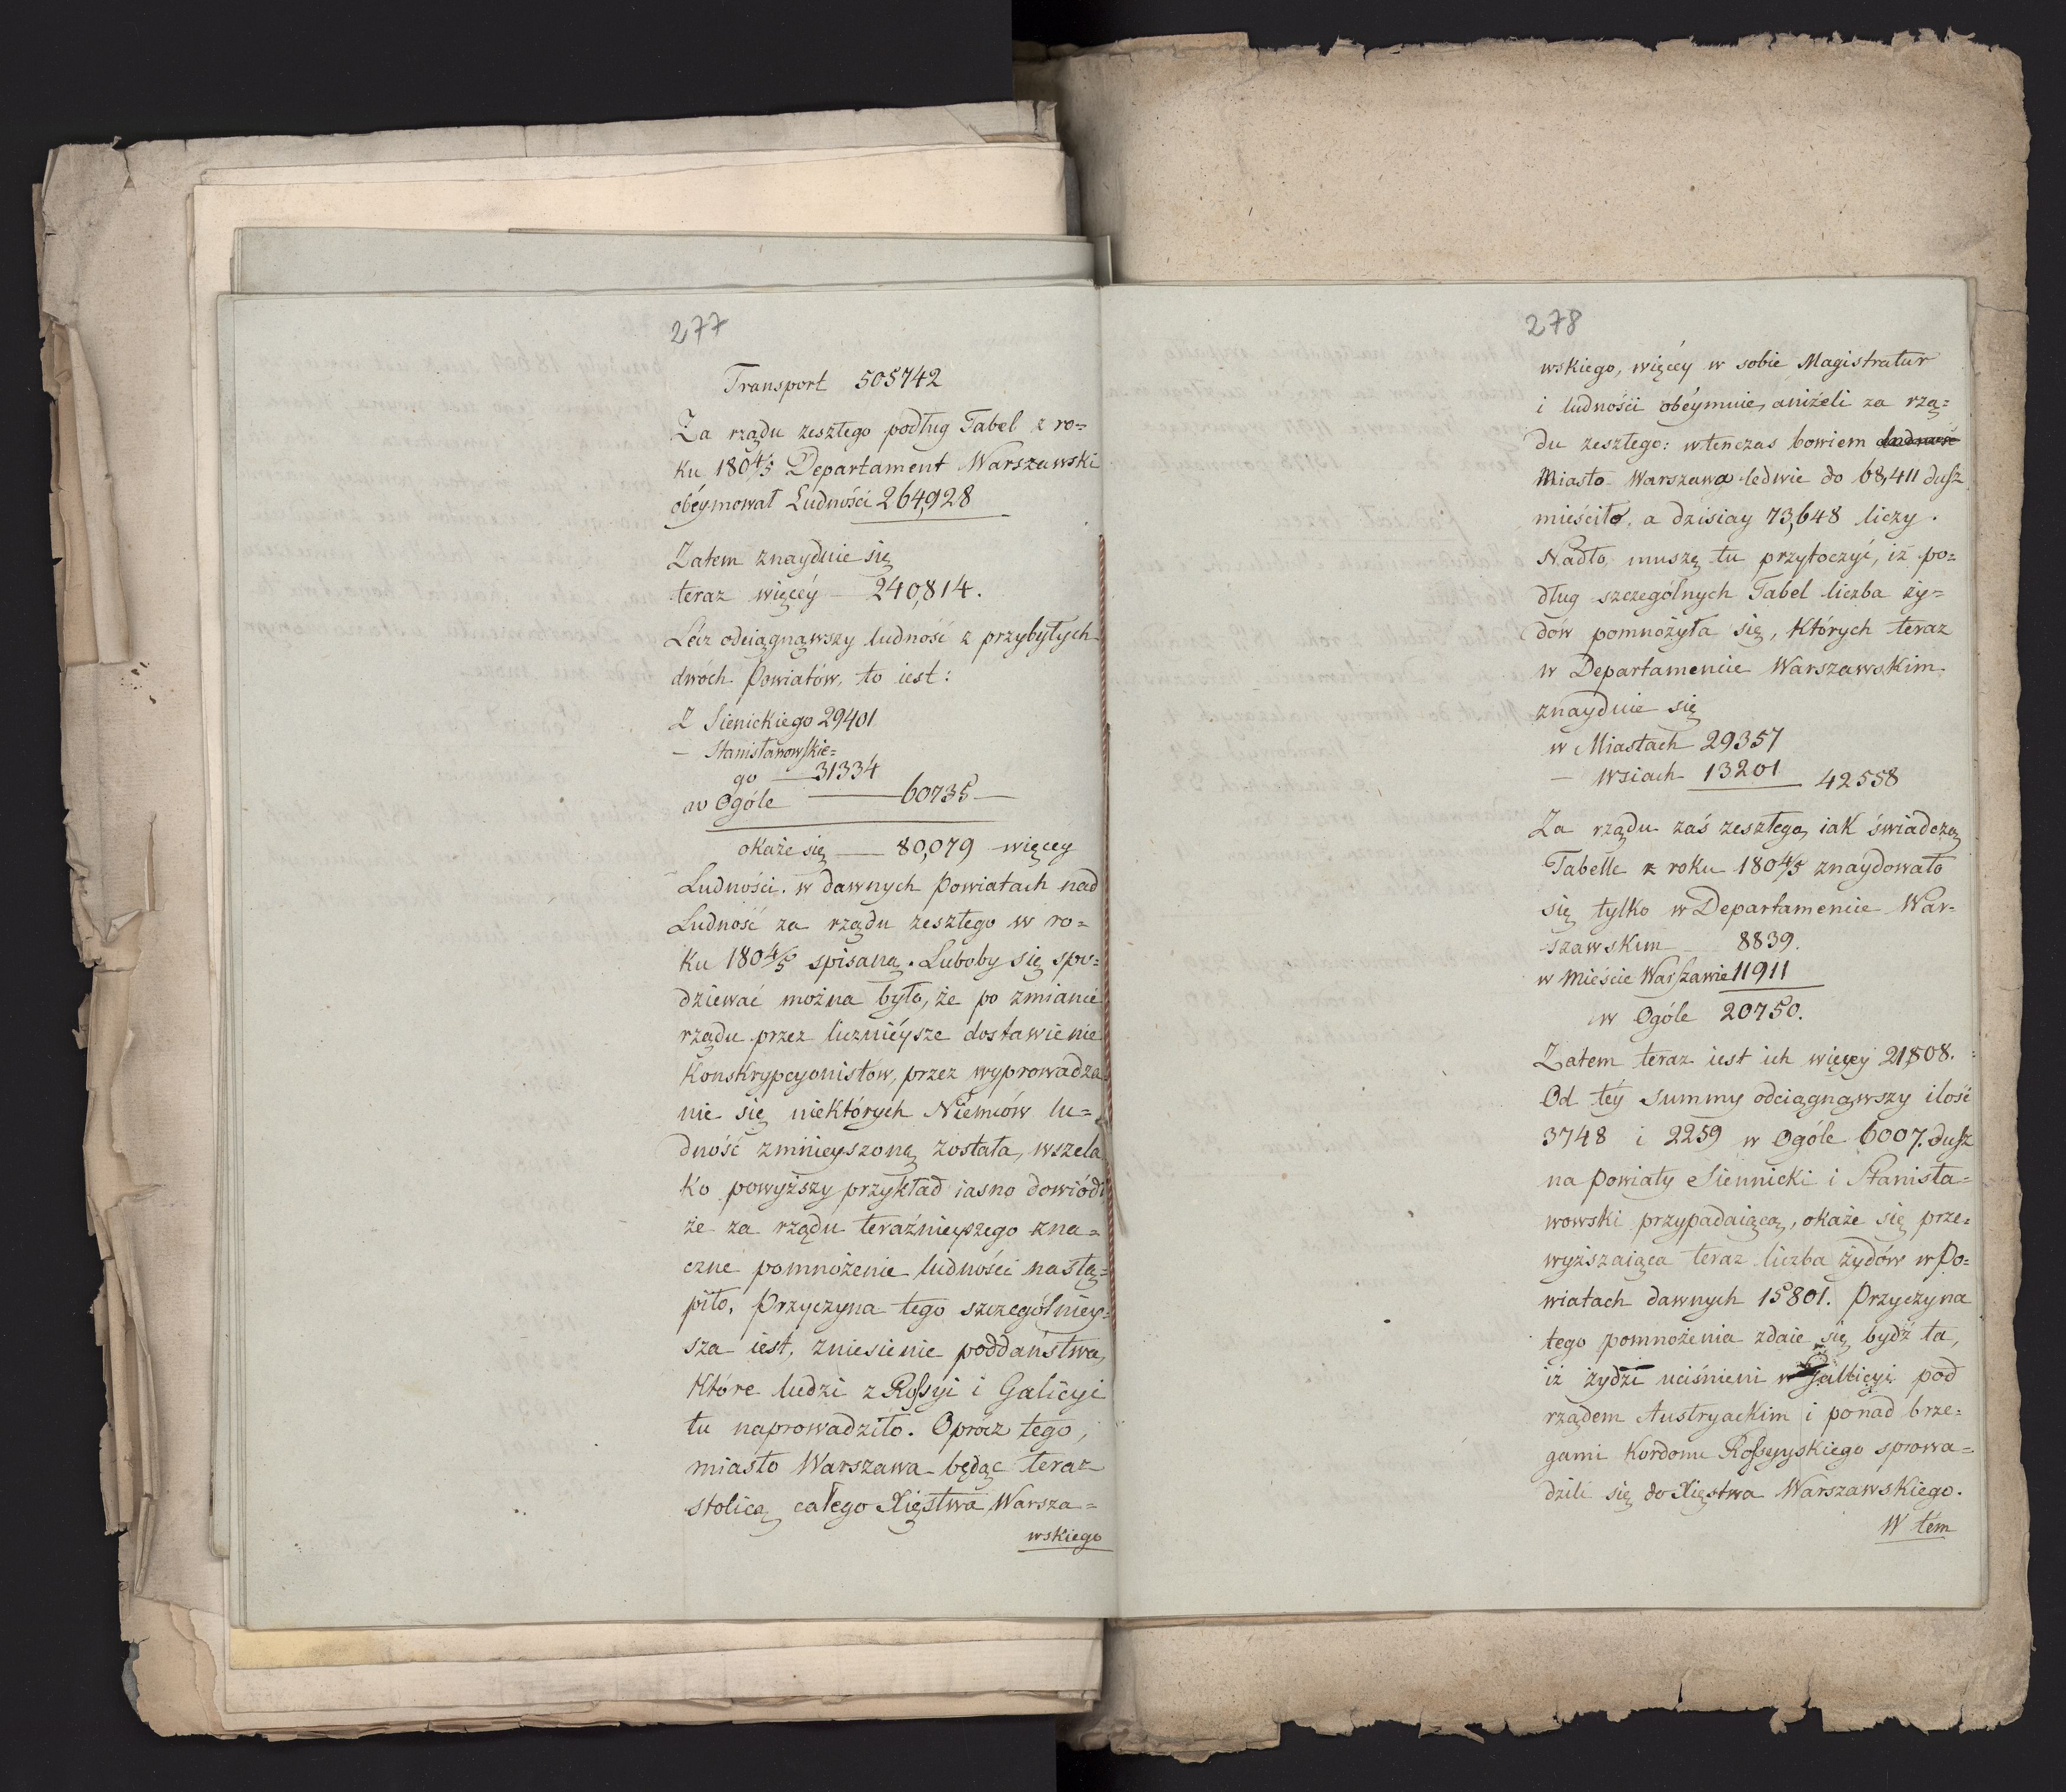 277
Transport 505742
Za rządu zeszłego podług Tabel z ro=
ku 180 4/5 Departament Warszawski
obéymował Ludności 264,928
Zatem znayduie się
teraz więcéy — 240,814.
Lécz odciągnąwszy ludność z przybyłych
dwóch Powiatów, to iest:
Z Sienickiego 29401
— Stanisławowskie=
go — 31334
w Ogóle — 60735 —
okaże się — 80,079 więcey
Ludności w dawnych Powiatach nad
Ludność za rządu zeszłego w ro=
ku 180 4/5 spisaną. Luboby się spo=
dziewać można było, że po zmianie
rządu przez liczniéysze dostawienie
Konskrypcyonistów, przez wyprowadza
nie się niektórych Niemców lu=
dność zmnieyszoną została, wszela
ko powyższy przykład iasno dowiódł
że za rządu teraźnieyszego zna=
czne pomnożenie ludności nastą=
piło. Przyczyna tego szczególniey=
sza iest, zniesienie poddaństwa,
które ludzi z Rossyi i Galicyi
tu naprowadziło. Oprócz tego,
miasto Warszawa będąc teraz
stolicą całego Xięstwa Warsza=
wskiego
278
wskiego, więcéy w sobie Magistratur
i ludności obéymuie, aniżeli za rzą=
du zeszłego: wtenczas bowiem ludność
Miasto Warszawa ledwie do 68,411 dusz
mieściło, a dzisiay 73,648 liczy.
Nadto, muszę tu przytoczyć, iż po=
dług szczególnych Tabel liczba ży=
dów pomnożyła się, których teraz
w Departamencie Warszawskim
znayduie się
w Miastach 29357
— wsiach 13201 42558
Za rządu zaś zeszłego, iak świadczą
Tabelle z roku 180 4/5 znaydowało
się tylko w Departamencie War=
szawskim — 8839.
w Mieście Warszawie 11911
w Ogóle 20750.
Zatem teraz iest ich więcey 21,808.
Od téy summy odciągnąwszy ilość
3748 i 2259 w Ogóle 6007. dusz
na Powiaty Siennicki i Stanisła=
wowski przypadaiącą, okaże się prze=
wyższaiąca teraz liczba żydów w Po=
wiatach dawnych 15801. Przyczyna
tego pomnożenia zdaie się bydź ta,
iż żydzi uciśnieni w Gallicyi pod
rządem Austryackim i ponad brze=
gami Kordonu Rossyyskiego sprowa=
dzili się do Xięstwa Warszawskiego.
W tém